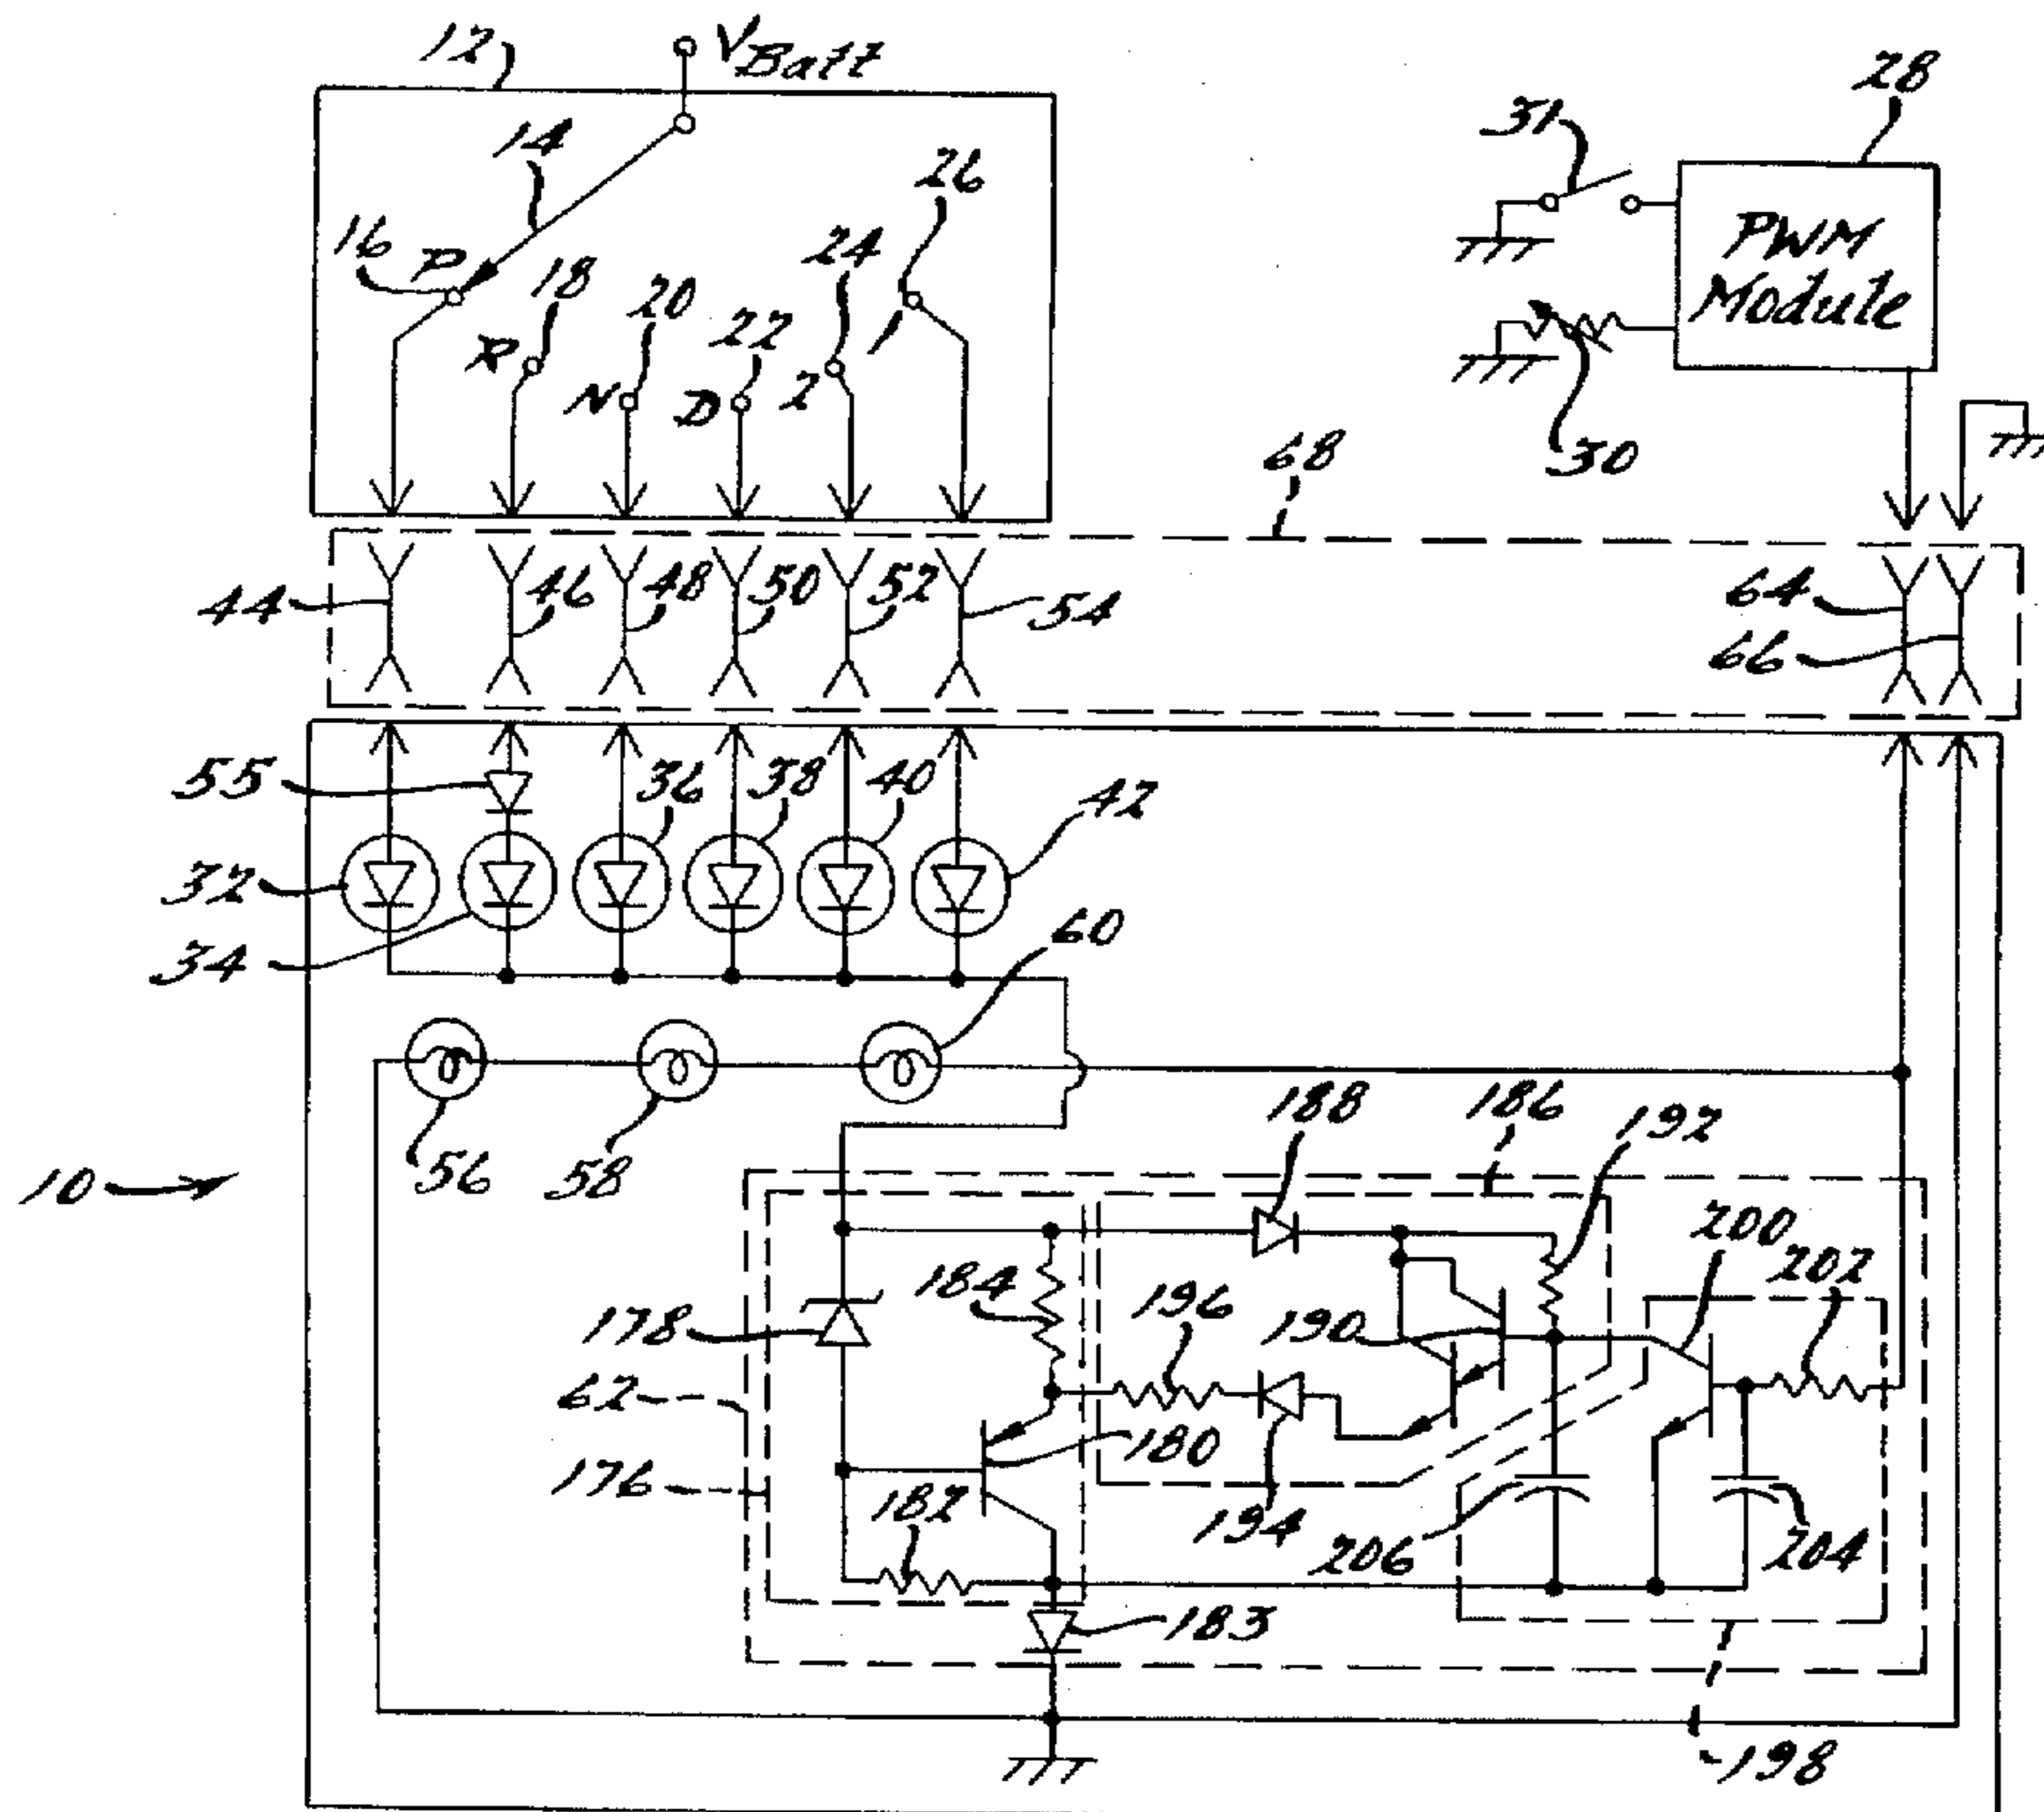 12
VBatt
28
31
14
26
16
P
18
24
20
22
R
N
D
2
1
PWM
Module
30
68
44
46
48
50
52
54
64
66
55
36
38
40
42
32
34
60
56
58
10
188
186
192
200
202
184
196
190
178
62
180
176
182
194
206
204
183
198